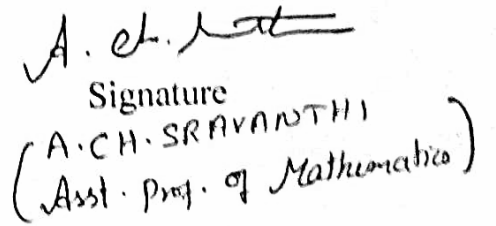 A. ch.
Signature
(A.CH.SRAVANTHI
Asst. Prof. of Mathematics)